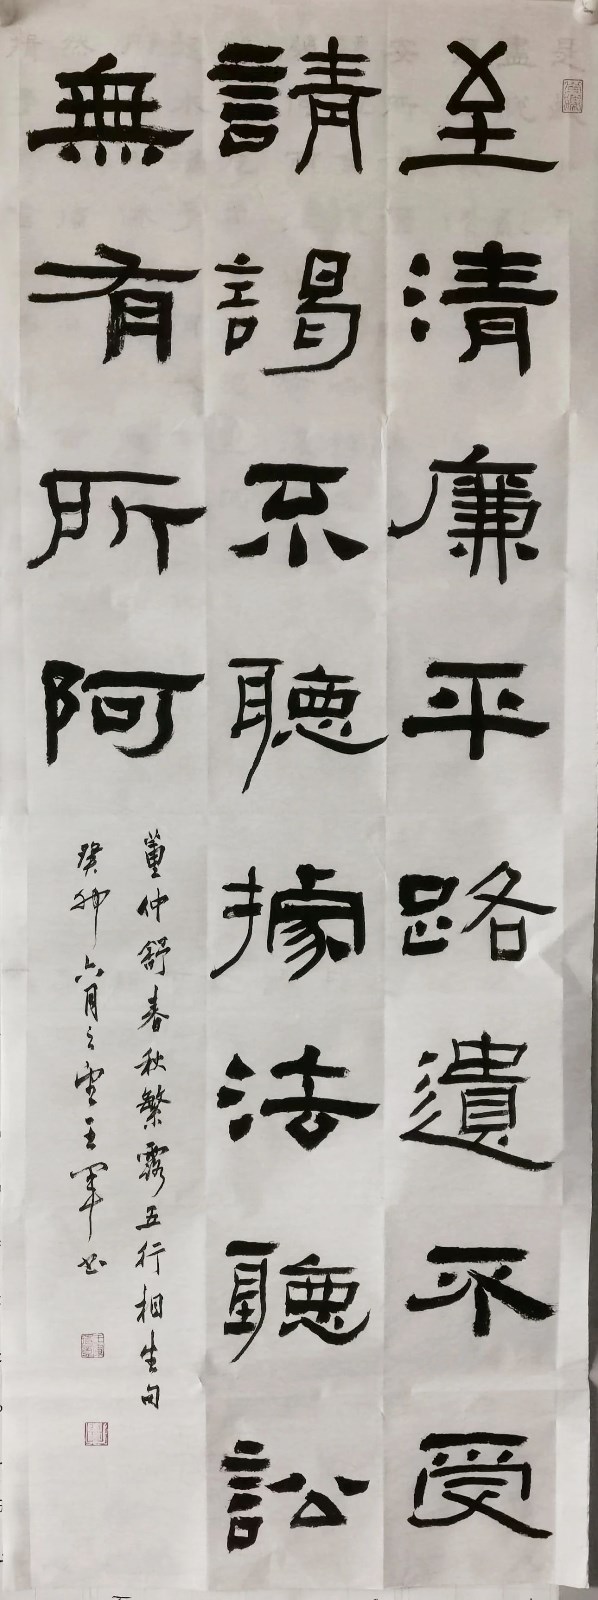 至清廉平路遺不受
請謁不聽據法聽訟
無有所阿
董仲舒春秋繁露五行相生句
癸卯六月之望王軍書